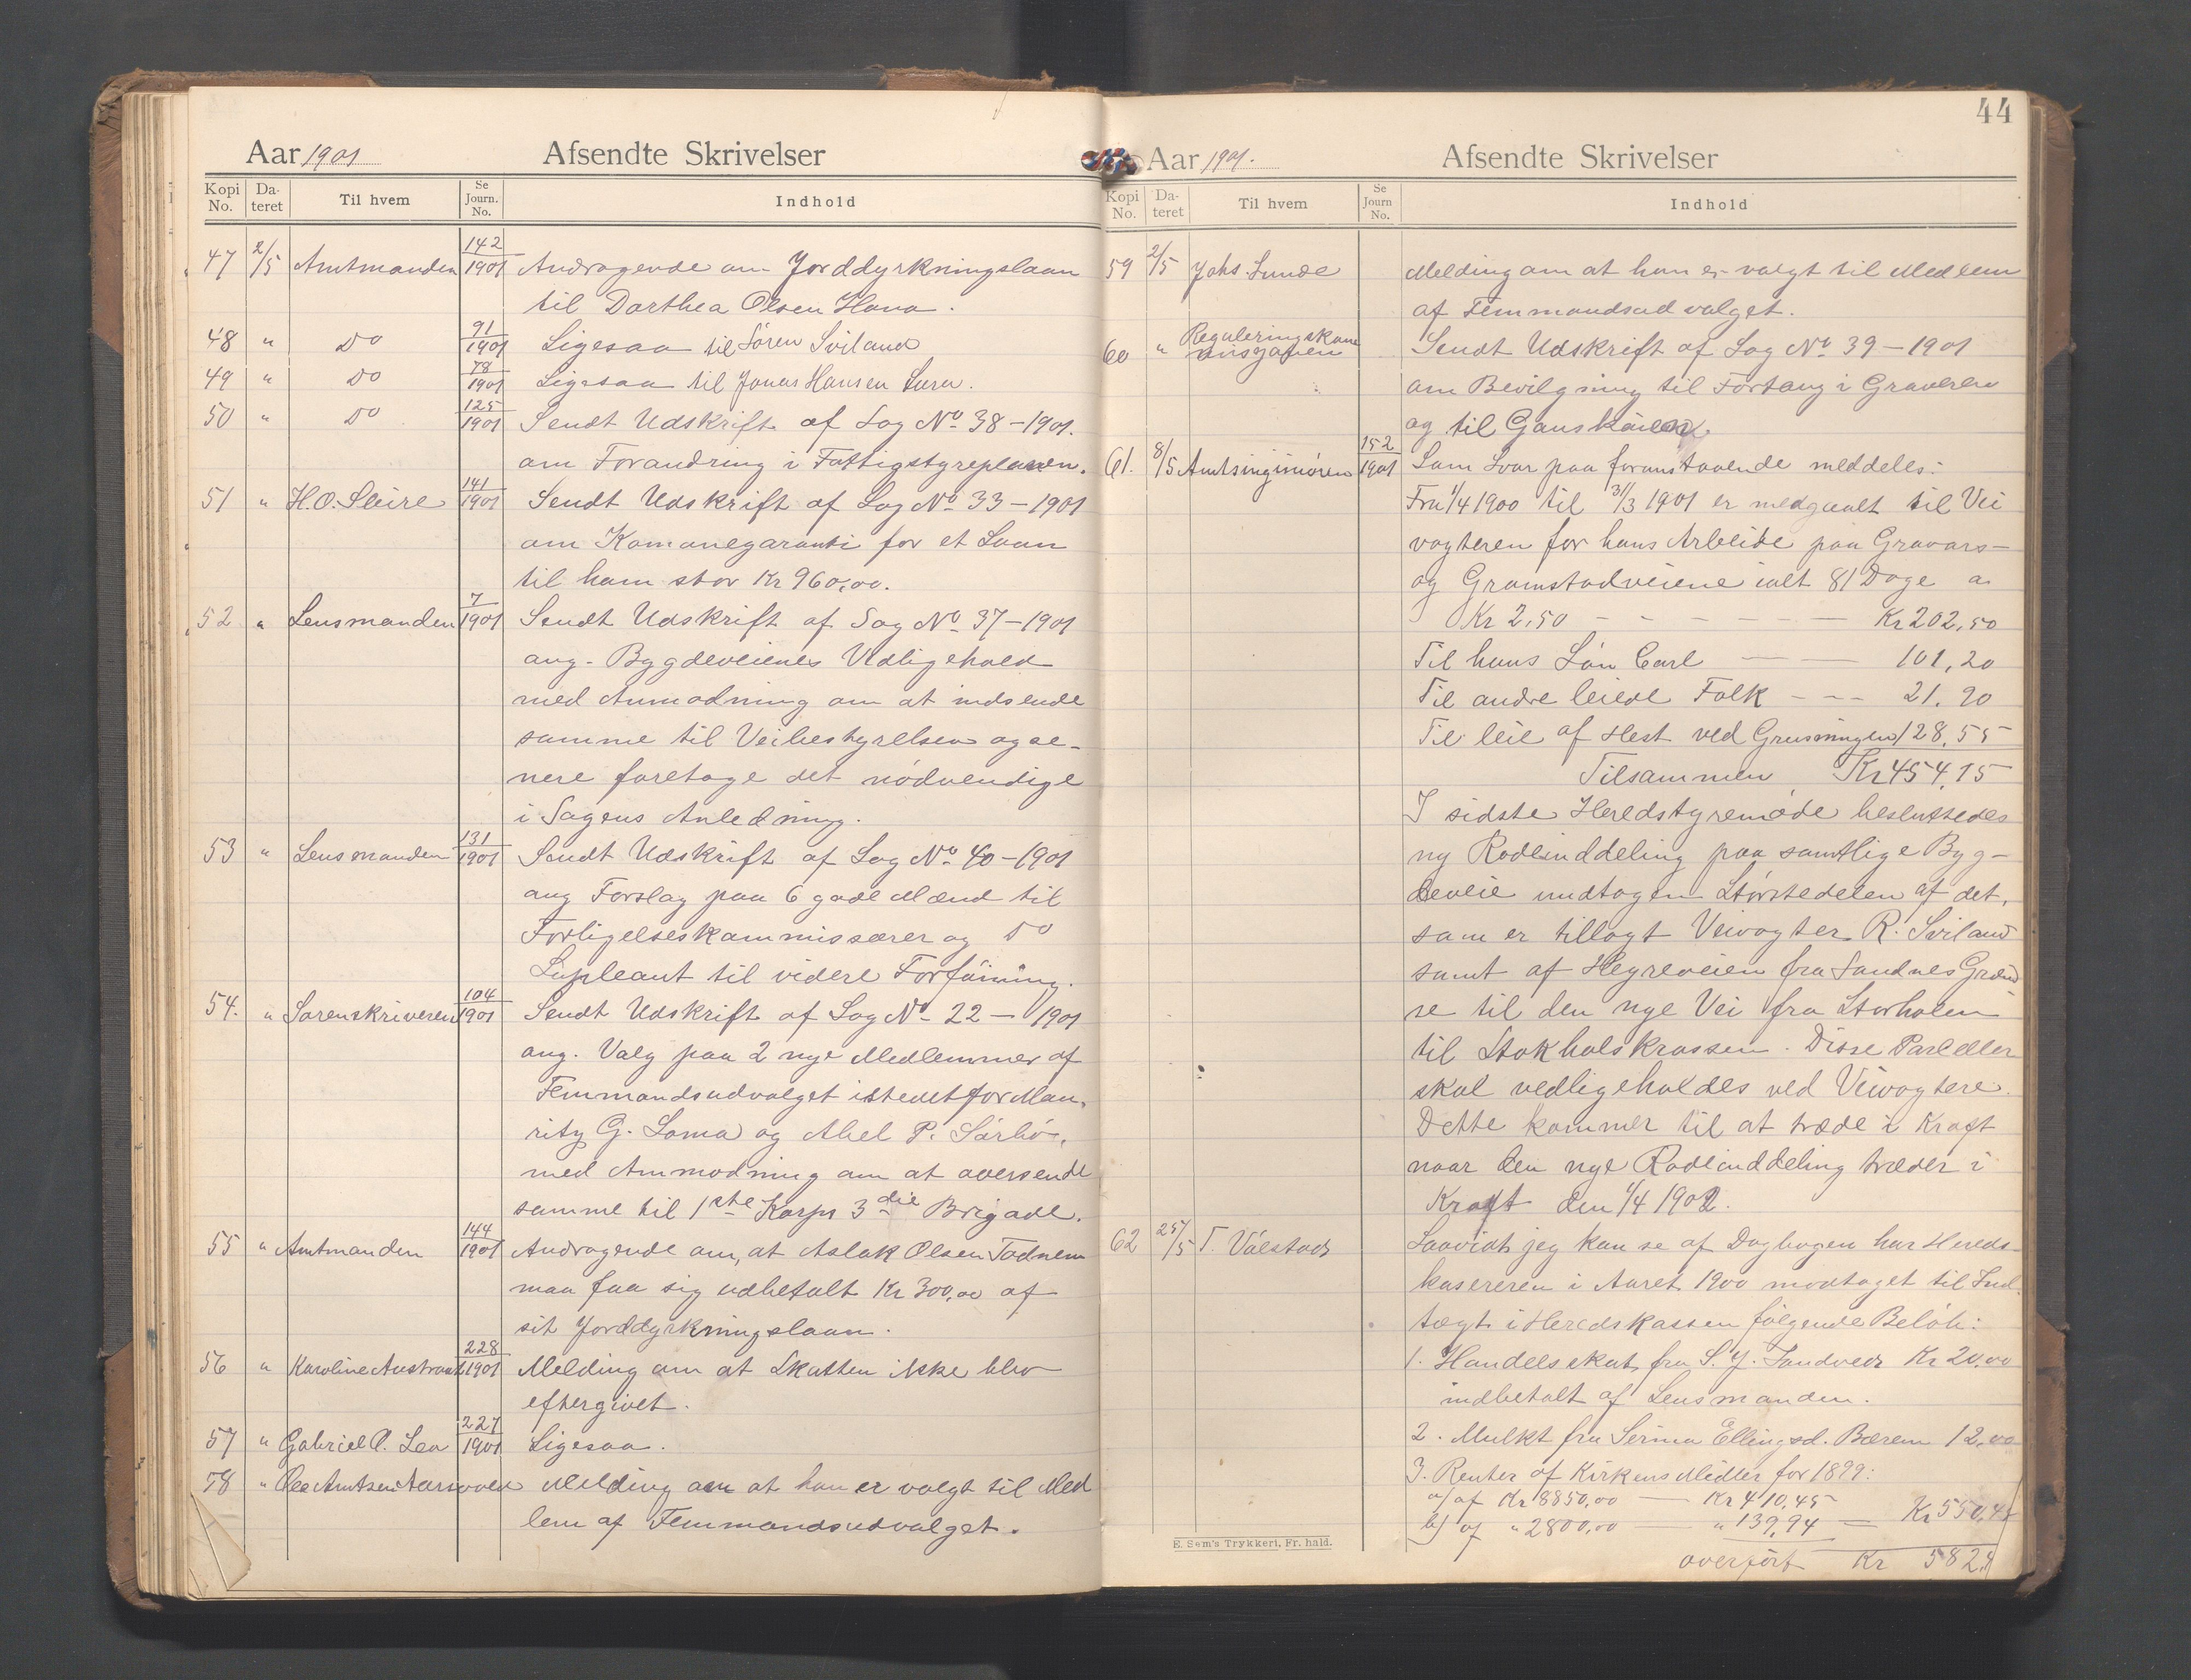 44
Aar 1901 Afsendte Skrivelser
Kopi No. Da-teret Til hvem Se Journ. No. Indhold
47 2/5 Amtmanden 142/1901 Andragende om Jorddyrkningslaan
til Dorthea Olsen Hana.
48 " Do 91/1901 Ligesaa til Sören Sviland
49 " Do 78/1901 Ligesaa til Jonas Hansen Lura.
50 " Do 125/1901 Sendt Udskrift af Sag No 38-1901.
om Forandring i Fattigstyreplanen.
51 " H.O. Sleire 141/1901 Sendt Udskrift af Sag No 33-1901
om Komunegaranti for et Laan
til ham stor Kr 960,00.
52 " Lensmanden 7/1901 Sendt Udskrift af Sag No 37-1901
ang. Bygdeveienes Vedligehold
med Anmodning om at indsende
samme til Veibestyrelsen og se-
nere foretage det nödvendige
i Sagens Anledning.
53 " Lensmanden 131/1901 Sendt Udskrift af Sag No 40-1901
ang Forslag paa 6 gode Mænd til
Forligelseskommissærer og Do
Supleant til videre Forföining.
54. " Sorenskriveren 104/1901 Sendt Udskrift af Sag No 22-1901
ang. Valg paa 2 nye Medlemmer af
Femmandsudvalget istedet for Mau-
ritz G. Soma og Abel P. Sörbö,
med Anmodning om at oversende
samme til 1ste Korps 3die Brigade.
55 " Amtmanden 144/1901 Andragende om, at Aslak Olsen Tadnem
maa faa sig udbetalt Kr 300,00 af
sit Jorddyrkningslaan.
56 " Karoline Austraat 228/1901 Melding om at Skatten ikke blev
eftergivet.
57 " Gabriel A. Lea 227/1901 Ligesaa.
58 " Ole Amtsen Aarsvoll Melding om at han er valgt til Med
lem af Femmandsudvalget.
Aar 1901. Afsendte Skrivelser
Kopi No. Da-teret Til hvem Se Journ No. Indhold
59 2/5 Johs Lunde Melding om at han er valgt til Medlem
af Femmandsudvalget.
60 " Reguleringskom Sendt Udskrift af Sag No 39-1901
missjonen
om Bevilgning til Fortaug i Graveren
og til Ganskaien.
61. 8/5 Amtsingeniören 152/1901 Som Svar paa foranstaaende meddeles:
Fra 1/4 1900 til 31/3 1901 er medgaaet til Vei
vogteren for hans Arbeide paa Gravars-
og Gramstadveiene ialt 81 Dage a
Kr 2,50 - - - - - Kr 202,50
Til hans Sön Carl — — 101,20
Til andre leiede Folk - - - 21.90
Til leie af Hest ved Grusningen 128,55
Tilsammen Kr 454,15
I sidste Heredstyremöde besluttedes
ny Rodeinddeling paa samtlige Byg-
deveie undtagen Störstedelen af det,
som er tillagt Veivogter R. Sviland
samt af Høyreveien fra Sandnes Græn
se til den nye Vei fra Storholen
til Stokholskrossen. Disse Parceller
skal vedligeholdes ved Veivogtere.
Dette kommer til at træde i Kraft
naar den nye Rodeinddeling træder i
Kraft den 1/4 1902.
62 25/5 T. Välstad Saavidt jeg kan se af Dagbogen har Hereds
kasereren i Aaret 1900 modtaget til Ind-
tægt i Heredskassen fölgende Belöb:
1. Handelsskat fra S. Y. Sandved Kr 20,00
indbetalt af Lensmanden.
2. Mulkt fra Serina Ellingsd. Bærem 12,00
3. Renter af Kirkens Midler for 1899:
a) af Kr 8850,00 — Kr 410,45
b) af " 2800,00 — " 139,94 — Kr 550,4
overfört Kr 582,
E. Sem's Trykkeri, Fr. hald.